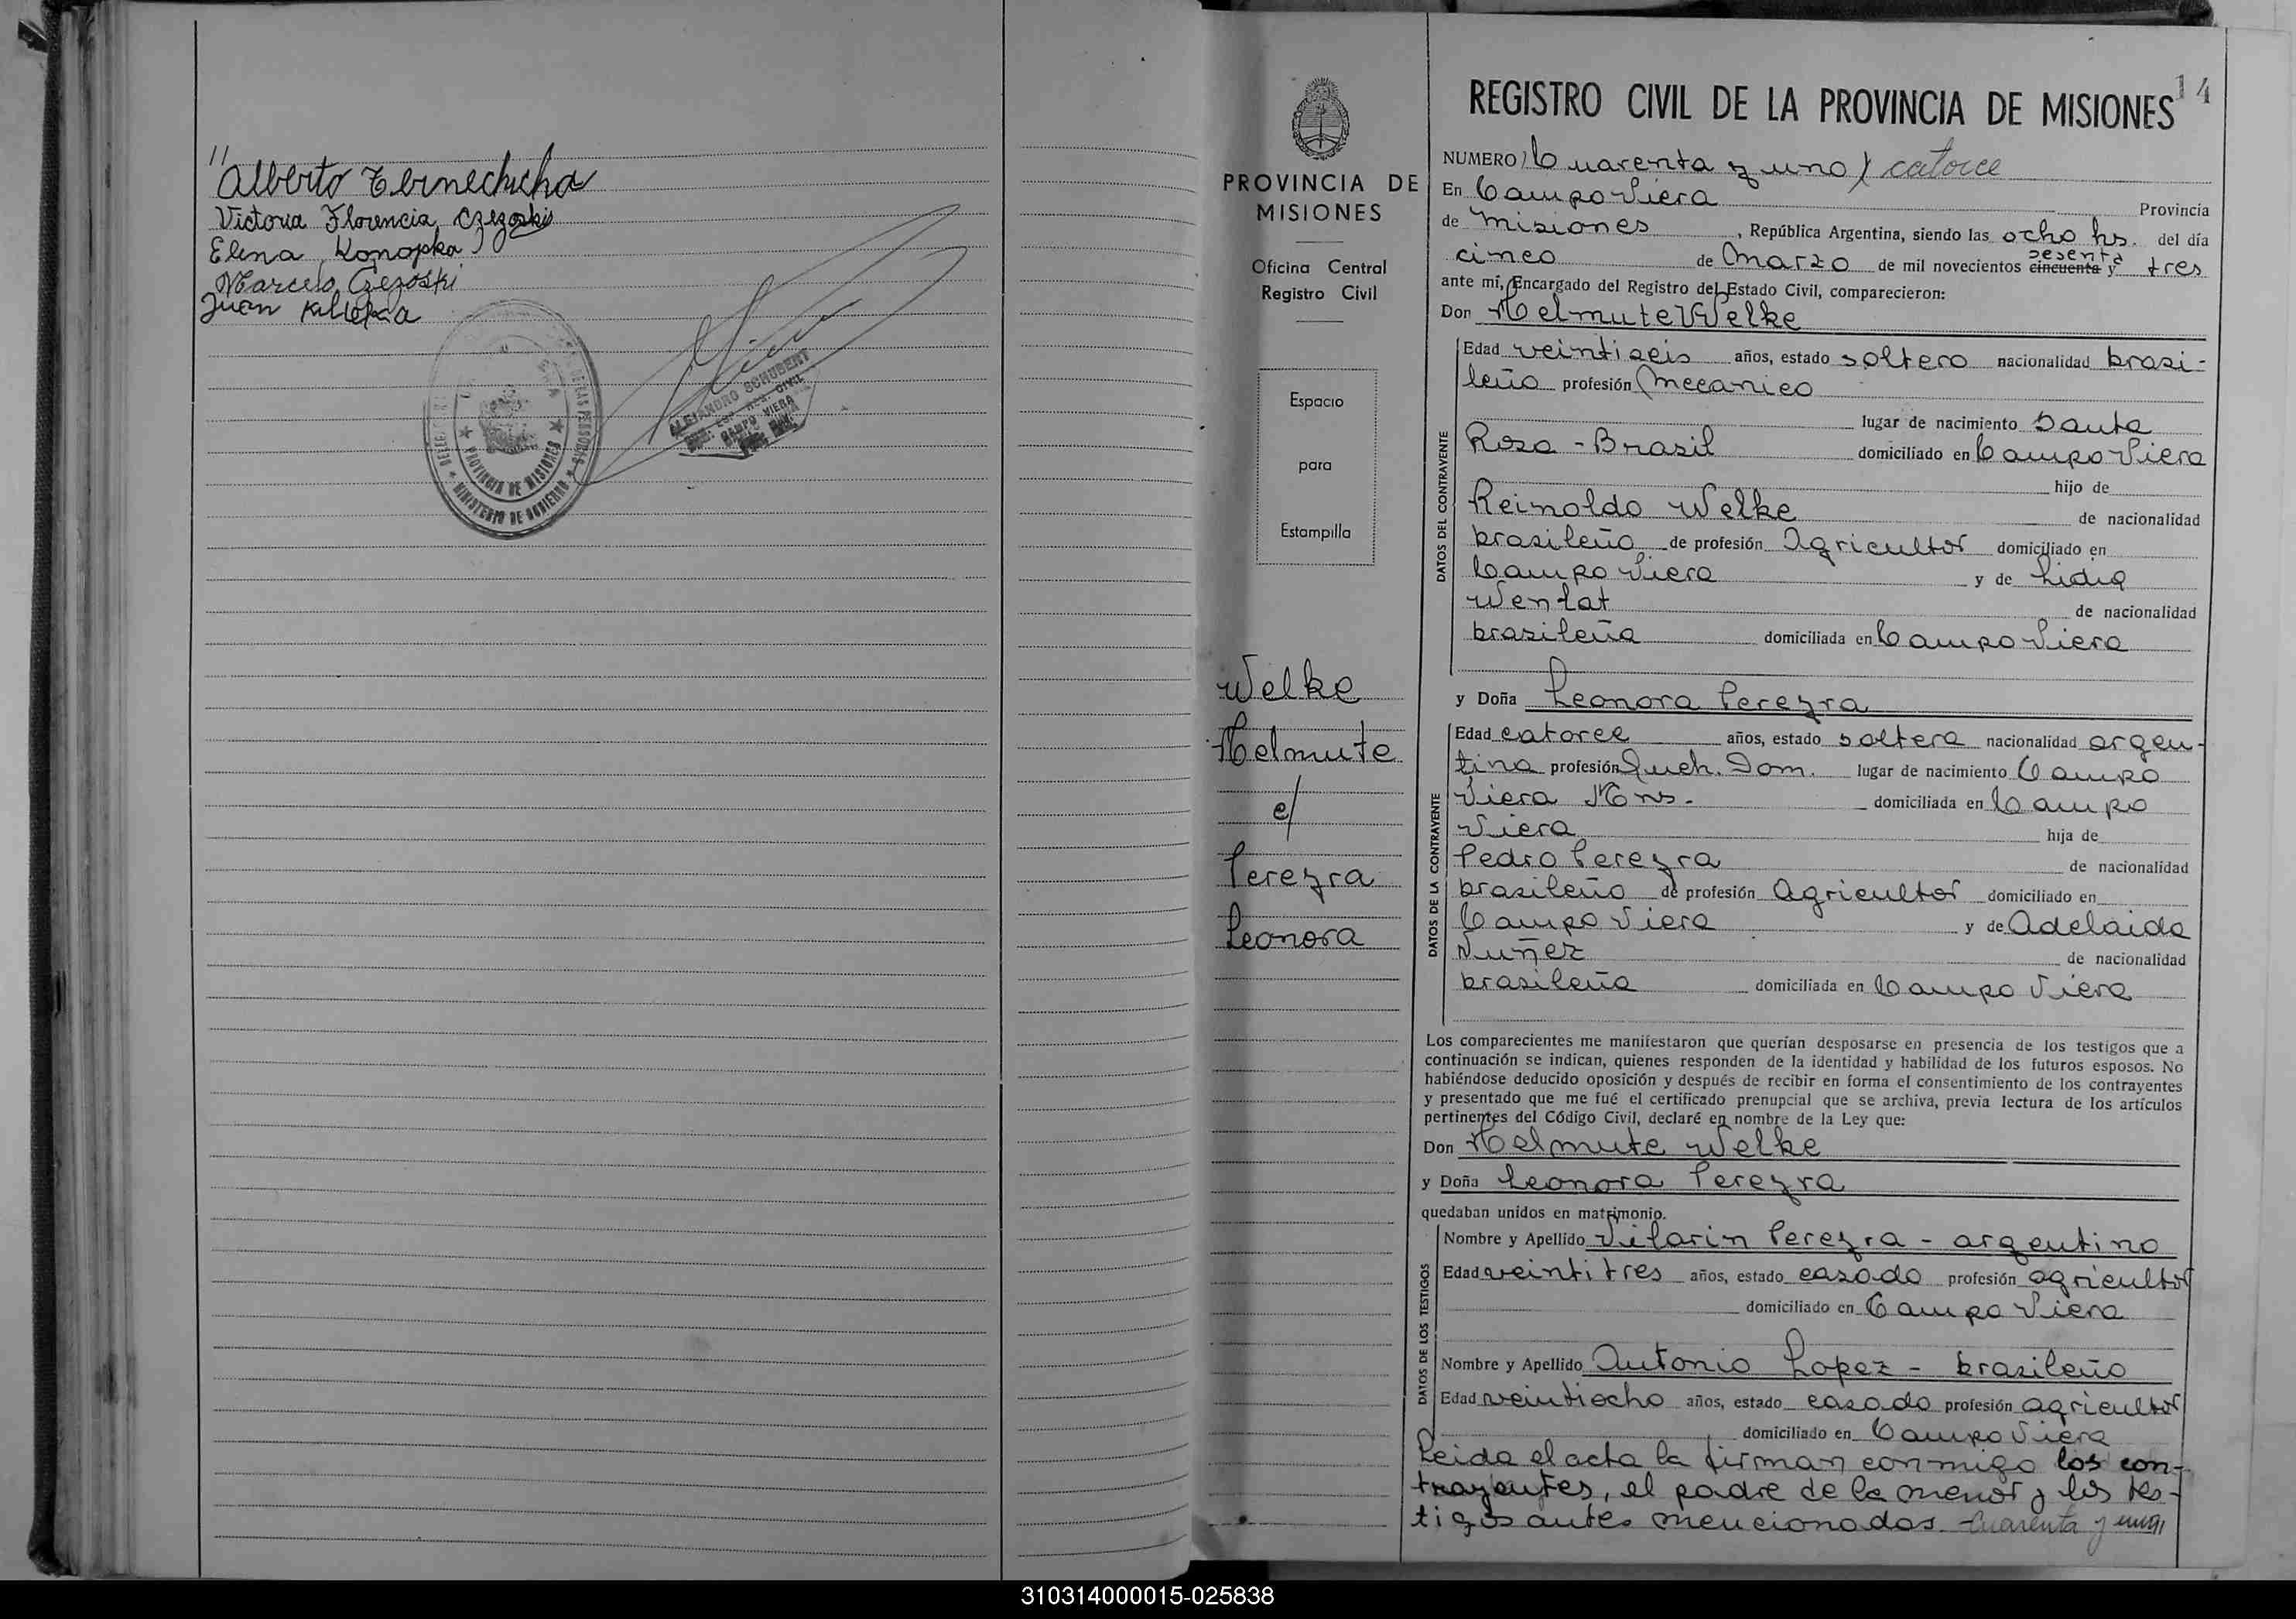 "
Alberto Ternechicha
Victoria Florencia Czezoski
Elena Konopka
Marcelo Czezoski
Juan
PROVINCIA DE MISIONES
MINISTERIO DE GOBIERNO
ALEJANDRO SCHUBERT
CAMPO VIERA
PROVINCIA DE
MISIONES
Oficina Central
Registro Civil
Espacio
para
Estampilla
Welke
Helmute
c/
Pereyra
Leonora
14
REGISTRO CIVIL DE LA PROVINCIA DE MISIONES
NUMERO) Cuarenta y uno) catorce
En Campo Viera Provincia
de Misiones, República Argentina, siendo las ocho hs. del día
cinco de Marzo de mil novecientos cincuenta sesenta y tres
ante mi, Encargado del Registro del Estado Civil, comparecieron:
Don Helmute Welke
DATOS DEL CONTRAYENTE
Edad veintiseis años, estado soltero nacionalidad brasi-
leño profesión Mecanico
lugar de nacimiento Santa
Rosa - Brasil domiciliado en Campo Viera
hijo de
Reinoldo Welke de nacionalidad
brasileño de profesión Agricultor domiciliado en
Campo Viera y de Lidia
Wentat de nacionalidad
brasileña domiciliada en Campo Viera
y Doña Leonora Pereyra
DATOS DE LA CONTRAYENTE
Edad catorce años, estado soltera nacionalidad argen-
tina profesión Queh. Dom. lugar de nacimiento Campo
Viera Mns. domiciliada en Campo
Viera hija de
Pedro Pereyra de nacionalidad
brasileño de profesión Agricultor domiciliado en
Campo Viera y de Adelaida
Nuñez de nacionalidad
brasileña domiciliada en Campo Viera
Los comparecientes me manifestaron que querían desposarse en presencia de los testigos que a
continuación se indican, quienes responden de la identidad y habilidad de los futuros esposos. No
habiéndose deducido oposición y después de recibir en forma el consentimiento de los contrayentes
y presentado que me fué el certificado prenupcial que se archiva, previa lectura de los artículos
pertinentes del Código Civil, declaré en nombre de la Ley que:
Don Helmute Welke
y Doña Leonora Pereyra
quedaban unidos en matrimonio.
DATOS DE LOS TESTIGOS
Nombre y Apellido Vilarin Pereyra - argentino
Edad veintitres años, estado casado profesión agricultor
domiciliado en Campo Viera
Nombre y Apellido Antonio Lopez - brasileño
Edad veintiocho años, estado casado profesión agricultor
domiciliado en Campo Viera
Leida el acta la firman conmigo los con-
trayentes, el padre de la menor y los tes-
tigos antes mencionados. - Cuarenta y uno,
310314000015-025838